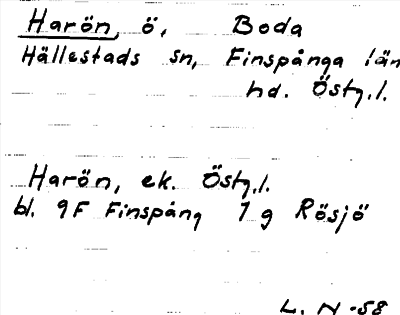 Harön, ö, Boda
Hällestads sn, Finspånga län
hd. Östg.l.
Harön, ek. Östg.l.
bl. 9F Finspång 7 g Rösjö
L. N -58